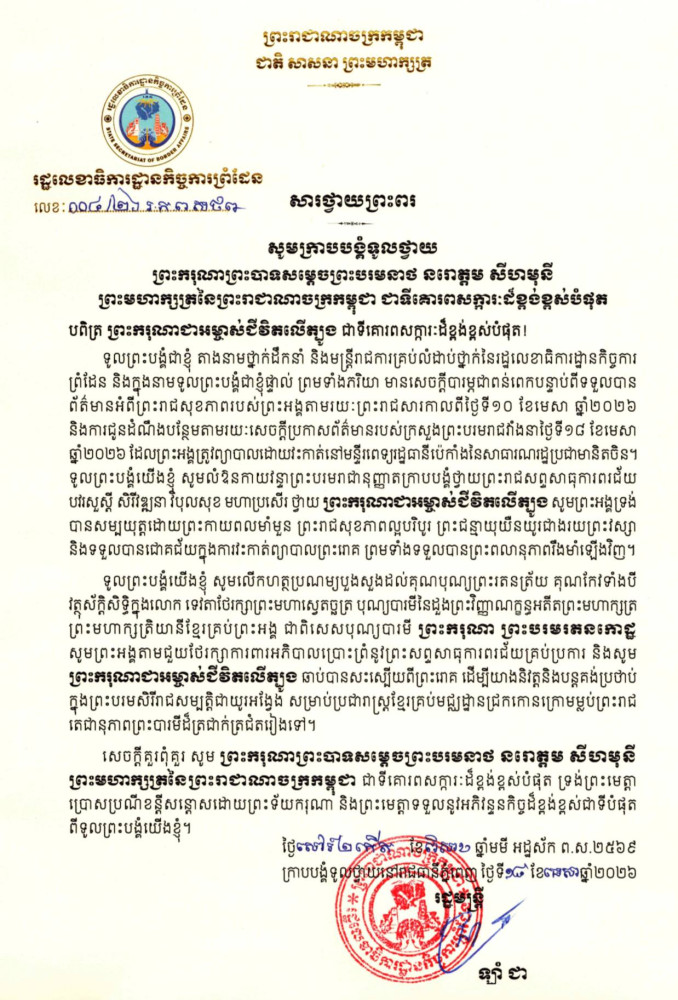 ព្រះរាជាណាចក្រកម្ពុជា
ជាតិ សាសនា ព្រះមហាក្សត្រ
រដ្ឋលេខាធិការដ្ឋានកិច្ចការព្រំដែន
STATE SECRETARIAT OF BORDER AFFAIRS
រដ្ឋលេខាធិការដ្ឋានកិច្ចការព្រំដែន
លេខៈ ០០៤/២៦
សារថ្វាយព្រះពរ
សូមក្រាបបង្គំទូលថ្វាយ
ព្រះករុណាព្រះបាទសម្តេចព្រះបរមនាថ នរោត្តម សីហមុនី
ព្រះមហាក្សត្រនៃព្រះរាជាណាចក្រកម្ពុជា ជាទីគោរពសក្ការៈដ៏ខ្ពង់ខ្ពស់បំផុត
បពិត្រ ព្រះករុណាជាអម្ចាស់ជីវិតលើត្បូង ជាទីគោរពសក្ការៈដ៏ខ្ពង់ខ្ពស់បំផុត!
ទូលព្រះបង្គំជាខ្ញុំ តាងនាមថ្នាក់ដឹកនាំ និងមន្ត្រីរាជការគ្រប់លំដាប់ថ្នាក់នៃរដ្ឋលេខាធិការដ្ឋានកិច្ចការ
ព្រំដែន និងក្នុងនាមទូលព្រះបង្គំជាខ្ញុំផ្ទាល់ ព្រមទាំងភរិយា មានសេចក្តីបារម្ភជាពន់ពេកបន្ទាប់ពីទទួលបាន
ព័ត៌មានអំពីព្រះរាជសុខភាពរបស់ព្រះអង្គតាមរយៈព្រះរាជសារកាលពីថ្ងៃទី១០ ខែមេសា ឆ្នាំ២០២៦
និងការជូនដំណឹងបន្ថែមតាមរយៈសេចក្តីប្រកាសព័ត៌មានរបស់ក្រសួងព្រះបរមរាជវាំងនាថ្ងៃទី១៨ ខែមេសា
ឆ្នាំ២០២៦ ដែលព្រះអង្គត្រូវព្យាបាលដោយវះកាត់នៅមន្ទីរពេទ្យរដ្ឋធានីប៉េកាំងនៃសាធារណរដ្ឋប្រជាមានិតចិន។
ទូលព្រះបង្គំយើងខ្ញុំ សូមលំឱនកាយវន្ទាព្រះបរមរាជានុញ្ញាតក្រាបបង្គំថ្វាយព្រះរាជសព្ទសាធុការពរជ័យ
បវរសួស្តី សិរីវឌ្ឍនា វិបុលសុខ មហាប្រសើរ ថ្វាយ ព្រះករុណាជាអម្ចាស់ជីវិតលើត្បូង សូមព្រះអង្គទ្រង់
បានសម្បយុត្តដោយព្រះកាយពលមាំមួន ព្រះរាជសុខភាពល្អបរិបូរ ព្រះជន្មាយុយឺនយូរជាងរយព្រះវស្សា
និងទទួលបានជោគជ័យក្នុងការវះកាត់ព្យាបាលព្រះរោគ ព្រមទាំងទទួលបានព្រះពលានុភាពរឹងមាំឡើងវិញ។
ទូលព្រះបង្គំយើងខ្ញុំ សូមលើកហត្ថប្រណម្យបួងសួងដល់គុណបុណ្យព្រះរតនត្រ័យ គុណកែវទាំងបី
វត្ថុស័ក្តិសិទ្ធិក្នុងលោក ទេវតាថែរក្សាព្រះមហាស្វេតច្ឆត្រ បុណ្យបារមីនៃដួងព្រះវិញ្ញាណក្ខន្ធអតីតព្រះមហាក្សត្រ
ព្រះមហាក្សត្រិយានីខ្មែរគ្រប់ព្រះអង្គ ជាពិសេសបុណ្យបារមី ព្រះករុណា ព្រះបរមរតនកោដ្ឋ
សូមព្រះអង្គតាមជួយថែរក្សាការពារអភិបាលប្រោះព្រំនូវព្រះសព្ទសាធុការពរជ័យគ្រប់ប្រការ និងសូម
ព្រះករុណាជាអម្ចាស់ជីវិតលើត្បូង ឆាប់បានសះស្បើយពីព្រះរោគ ដើម្បីយាងនិវត្តនិងបន្តគង់ប្រថាប់
ក្នុងព្រះបរមសិរីរាជសម្បត្តិជាយូរអង្វែង សម្រាប់ប្រជារាស្ត្រខ្មែរគ្រប់មជ្ឈដ្ឋានជ្រកកោនក្រោមម្លប់ព្រះរាជ
តេជានុភាពព្រះបារមីដ៏ត្រជាក់ត្រជំតរៀងទៅ។
សេចក្តីគួរពុំគួរ សូម ព្រះករុណាព្រះបាទសម្តេចព្រះបរមនាថ នរោត្តម សីហមុនី
ព្រះមហាក្សត្រនៃព្រះរាជាណាចក្រកម្ពុជា ជាទីគោរពសក្ការៈដ៏ខ្ពង់ខ្ពស់បំផុត ទ្រង់ព្រះមេត្តា
ប្រោសប្រណីខន្តីសន្តោសដោយព្រះទ័យករុណា និងព្រះមេត្តាទទួលនូវអភិវន្ទនកិច្ចដ៏ខ្ពង់ខ្ពស់ជាទីបំផុត
ពីទូលព្រះបង្គំយើងខ្ញុំ។
ថ្ងៃសៅរ៍ ២កើត ខែពិសាខ ឆ្នាំមមី អដ្ឋស័ក ព.ស.២៥៦៩
ក្រាបបង្គំទូលថ្វាយនៅរាជធានីភ្នំពេញ ថ្ងៃទី១៨ ខែមេសា ឆ្នាំ២០២៦
រដ្ឋមន្ត្រី
ឡាំ ជា